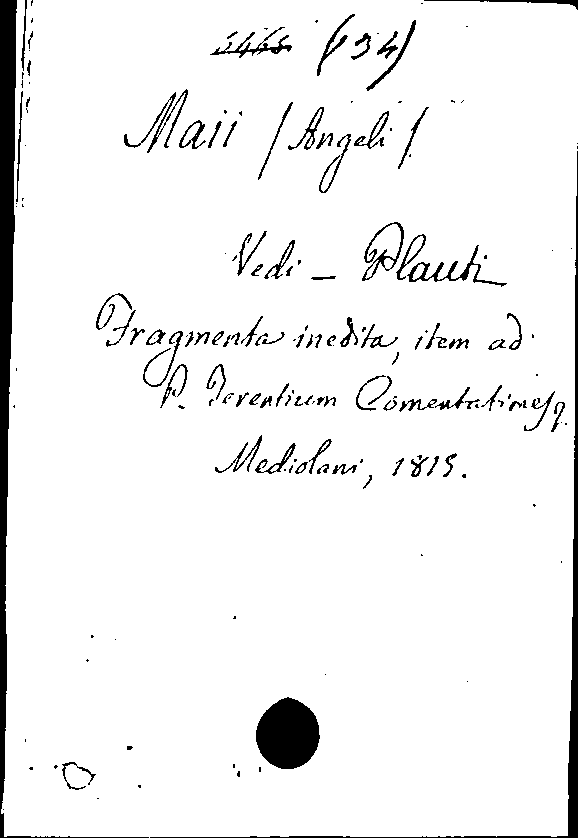 5465 (134)
Maii / Angeli /
Vedi – Plauti
Fragmenta inedita, item ad
P. Terentium Comentationes
Mediolani, 1815.